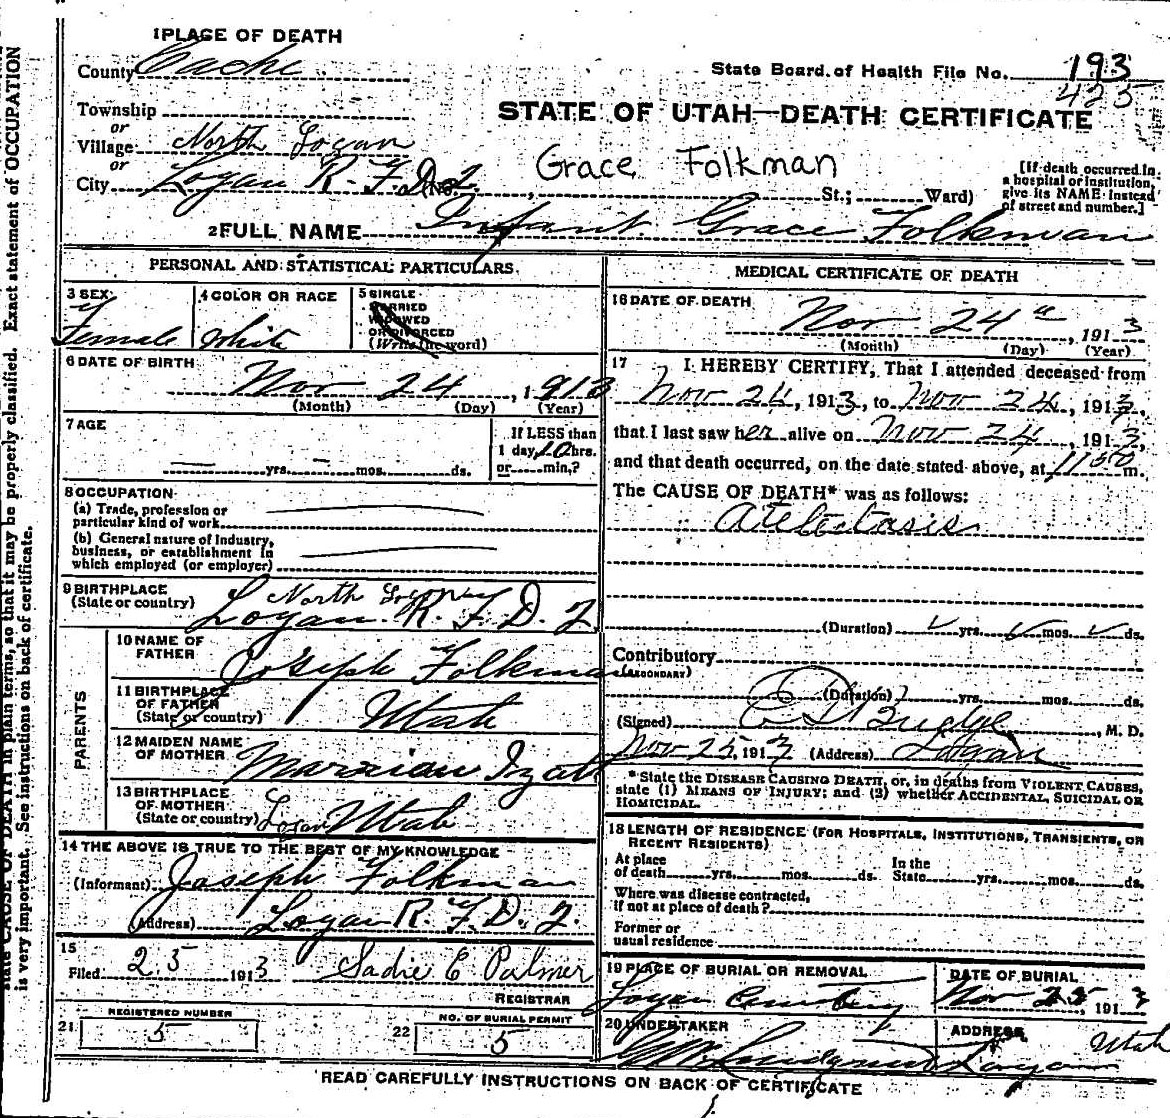 1 PLACE OF DEATH
County Cache
State Board of Health File No. 193
425
Township
or
Village North Logan
or
City Logan R. F. D. 2 (No.
STATE OF UTAH—DEATH CERTIFICATE
Grace Folkman
St.; Ward)
[If death occurred in
a hospital or institution,
give its NAME instead
of street and number.]
2 FULL NAME Infant Grace Folkman
PERSONAL AND STATISTICAL PARTICULARS.
3 SEX
Female
4 COLOR OR RACE
White
5 SINGLE
MARRIED
WIDOWED
OR DIVORCED
(Write the word)
6 DATE OF BIRTH
Nov 24, 1913
(Month) (Day) (Year)
7 AGE
yrs. mos. ds.
If LESS than
1 day 10 hrs.
or min.?
8 OCCUPATION
(a) Trade, profession or
particular kind of work
(b) General nature of Industry,
business, or establishment in
which employed (or employer)
9 BIRTHPLACE
(State or country)
North Logan
Logan R. F. D. 2
PARENTS
10 NAME OF
FATHER
Joseph Folkman
11 BIRTHPLACE
OF FATHER
(State or country)
Utah
12 MAIDEN NAME
OF MOTHER
13 BIRTHPLACE
OF MOTHER
(State or country)
Logan Utah
14 THE ABOVE IS TRUE TO THE BEST OF MY KNOWLEDGE
(Informant) Joseph Folkman
(Address) Logan R. F. D. 2.
15
Filed 25 1913 Sadie E Palmer
REGISTRAR
21
REGISTERED NUMBER
5
22
NO. OF BURIAL PERMIT
5
MEDICAL CERTIFICATE OF DEATH
16 DATE OF DEATH
Nov 24, 1913
(Month) (Day) (Year)
17 I HEREBY CERTIFY, That I attended deceased from
Nov 24, 1913, to Nov 24, 1913,
that I last saw her alive on Nov 24, 1913,
and that death occurred, on the date stated above, at 1150 m.
The CAUSE OF DEATH* was as follows:
Atelectasis
(Duration) yrs. mos. ds.
Contributory
(SECONDARY)
(Duration) yrs. mos. ds.
(Signed) Budge, M. D.
Nov 25, 1913 (Address) Logan
*State the DISEASE CAUSING DEATH, or, in deaths from VIOLENT CAUSES,
state (1) MEANS OF INJURY; and (2) whether ACCIDENTAL, SUICIDAL OR
HOMICIDAL.
18 LENGTH OF RESIDENCE (FOR HOSPITALS, INSTITUTIONS, TRANSIENTS, OR
RECENT RESIDENTS)
At place
of death yrs. mos. ds.
In the
State yrs. mos. ds.
Where was disease contracted,
if not at place of death?
Former or
usual residence
19 PLACE OF BURIAL OR REMOVAL
Logan Cemetery
DATE OF BURIAL
Nov 25, 1913
20 UNDERTAKER
ADDRESS
Logan Utah
READ CAREFULLY INSTRUCTIONS ON BACK OF CERTIFICATE
state CAUSE OF DEATH in plain terms, so that it may be properly classified. Exact statement of OCCUPATION
is very important. See instructions on back of certificate.